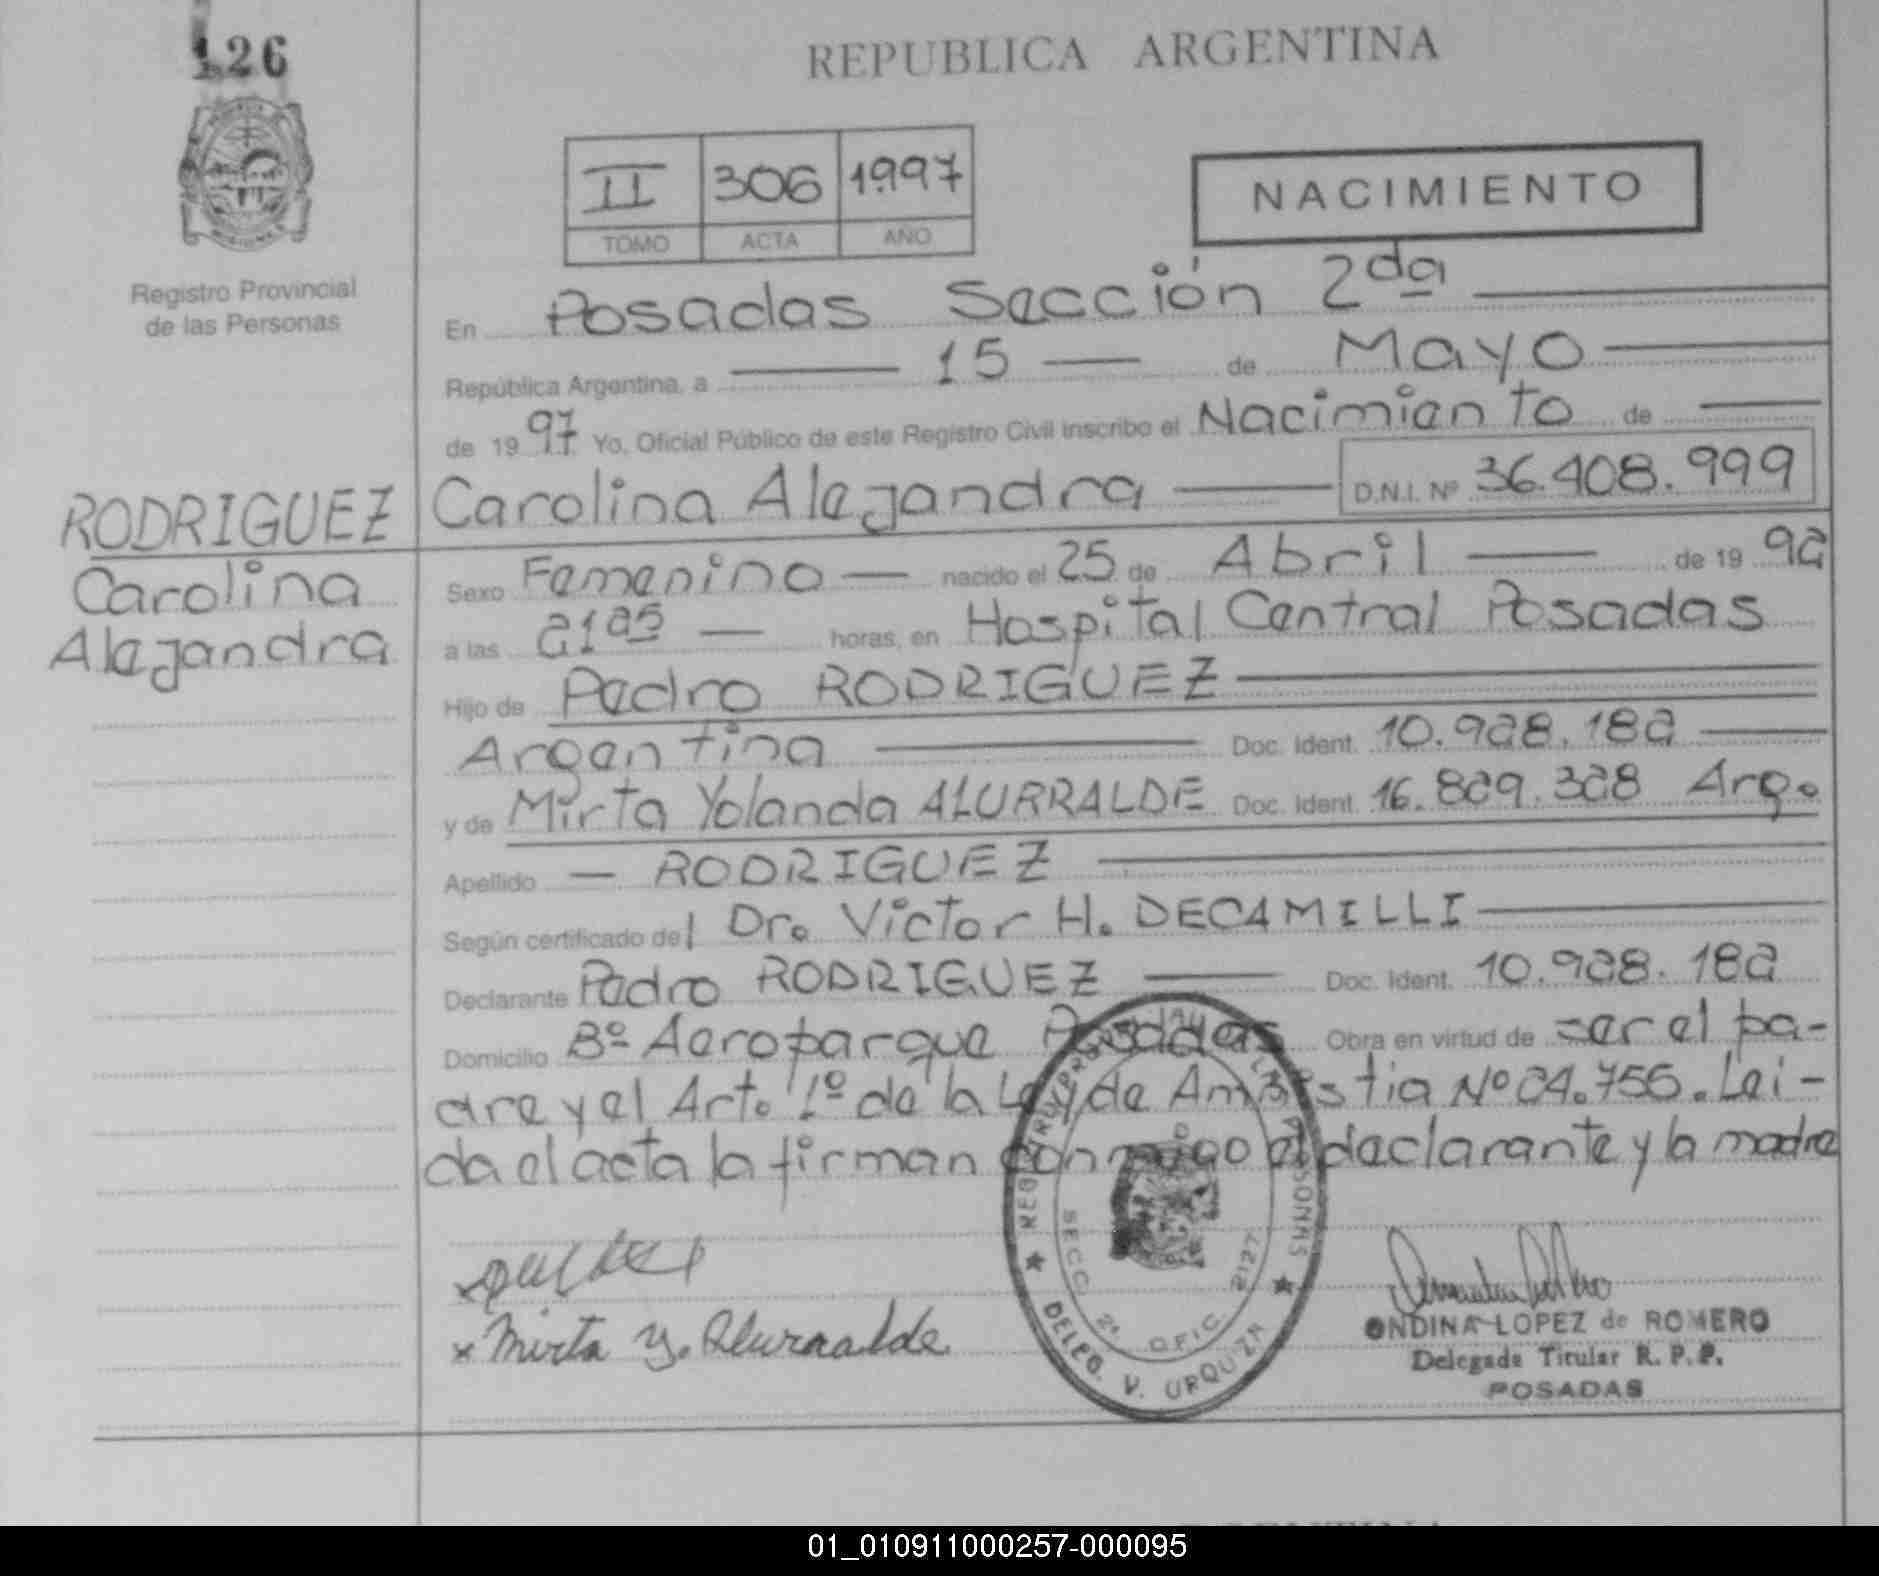 126
REPUBLICA ARGENTINA
II 306 1997
TOMO ACTA AÑO
NACIMIENTO
Registro Provincial
de las Personas
En Posadas Sección 2da
República Argentina, a 15 de Mayo
de 1997 Yo, Oficial Público de este Registro Civil inscribo el Nacimiento de
RODRIGUEZ
Carolina
Alejandra
Carolina Alejandra D.N.I. Nº 36.408.999
Sexo Femenino nacido el 25 de Abril de 1992
a las 21 25 horas, en Hospital Central Posadas
Hijo de Pedro RODRIGUEZ
Argentina Doc. Ident. 10.928.182
y de Mirta Yolanda ALURRALDE Doc. Ident. 16.829.328 Arg.
Apellido RODRIGUEZ
Según certificado del Dr. Victor H. DECAMILLI
Declarante Pedro RODRIGUEZ Doc. Ident. 10.928.182
Domicilio Bº Aeroparque Posadas Obra en virtud de ser el pa-
dre y el Art. 1º de la Ley de Amnistia Nº 24.756. Lei-
da el acta la firman conmigo el declarante y la madre
x Mirta Y. Alurralde
SECC. 2ª OFIC. 2127
DELEG. V. URQUIZA
ONDINA LOPEZ de ROMERO
Delegada Titular R. P. P.
POSADAS
01_010911000257-000095